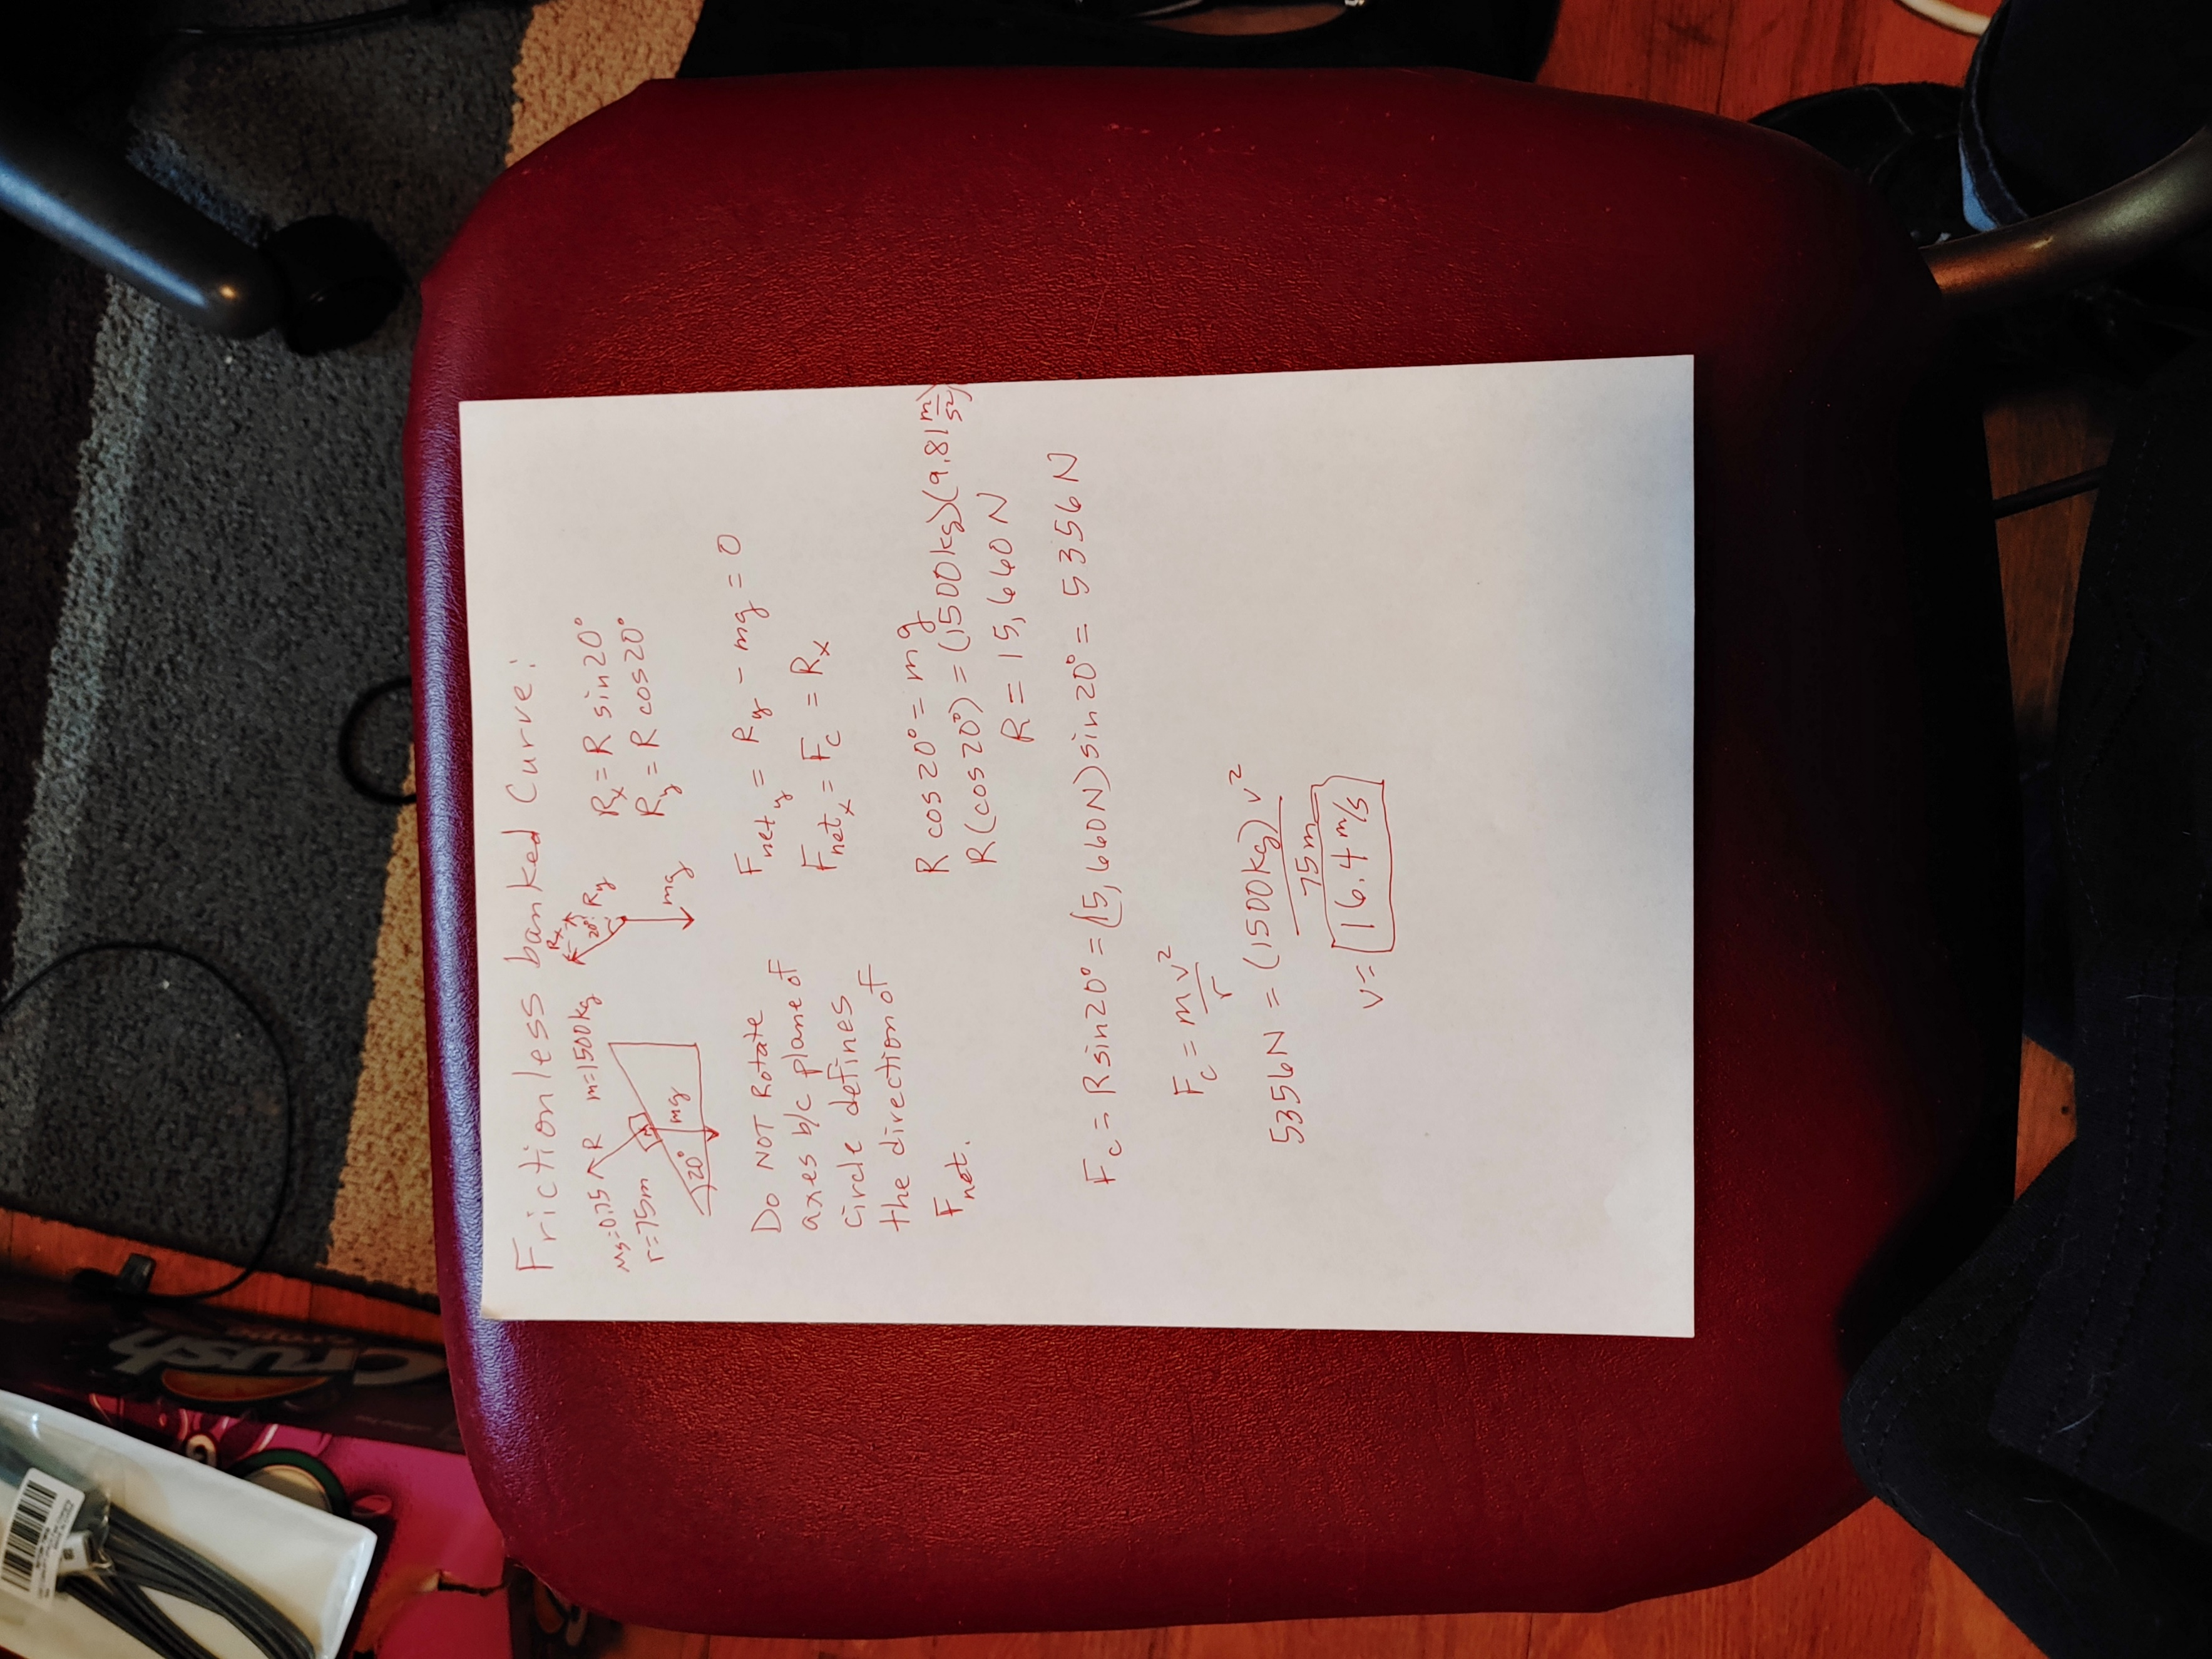 Frictionless banked Curve:
μs=0.75 R m=1500kg
r=75m
20° mg
Rx 20° Ry
mg
Rx = R sin20°
Ry = R cos20°
Do NOT Rotate
axes b/c plane of
circle defines
the direction of
Fnet.
Fnet y = Ry - mg = 0
Fnet x = Fc = Rx
R cos20° = mg
R(cos20°) = (1500kg)(9.81 m/s²)
R = 15,660N
Fc = Rsin20° = (15,660N)sin20° = 5356N
Fc = mv²/r
5356N = (1500kg)v²/75m
v = 16.4 m/s
Crush